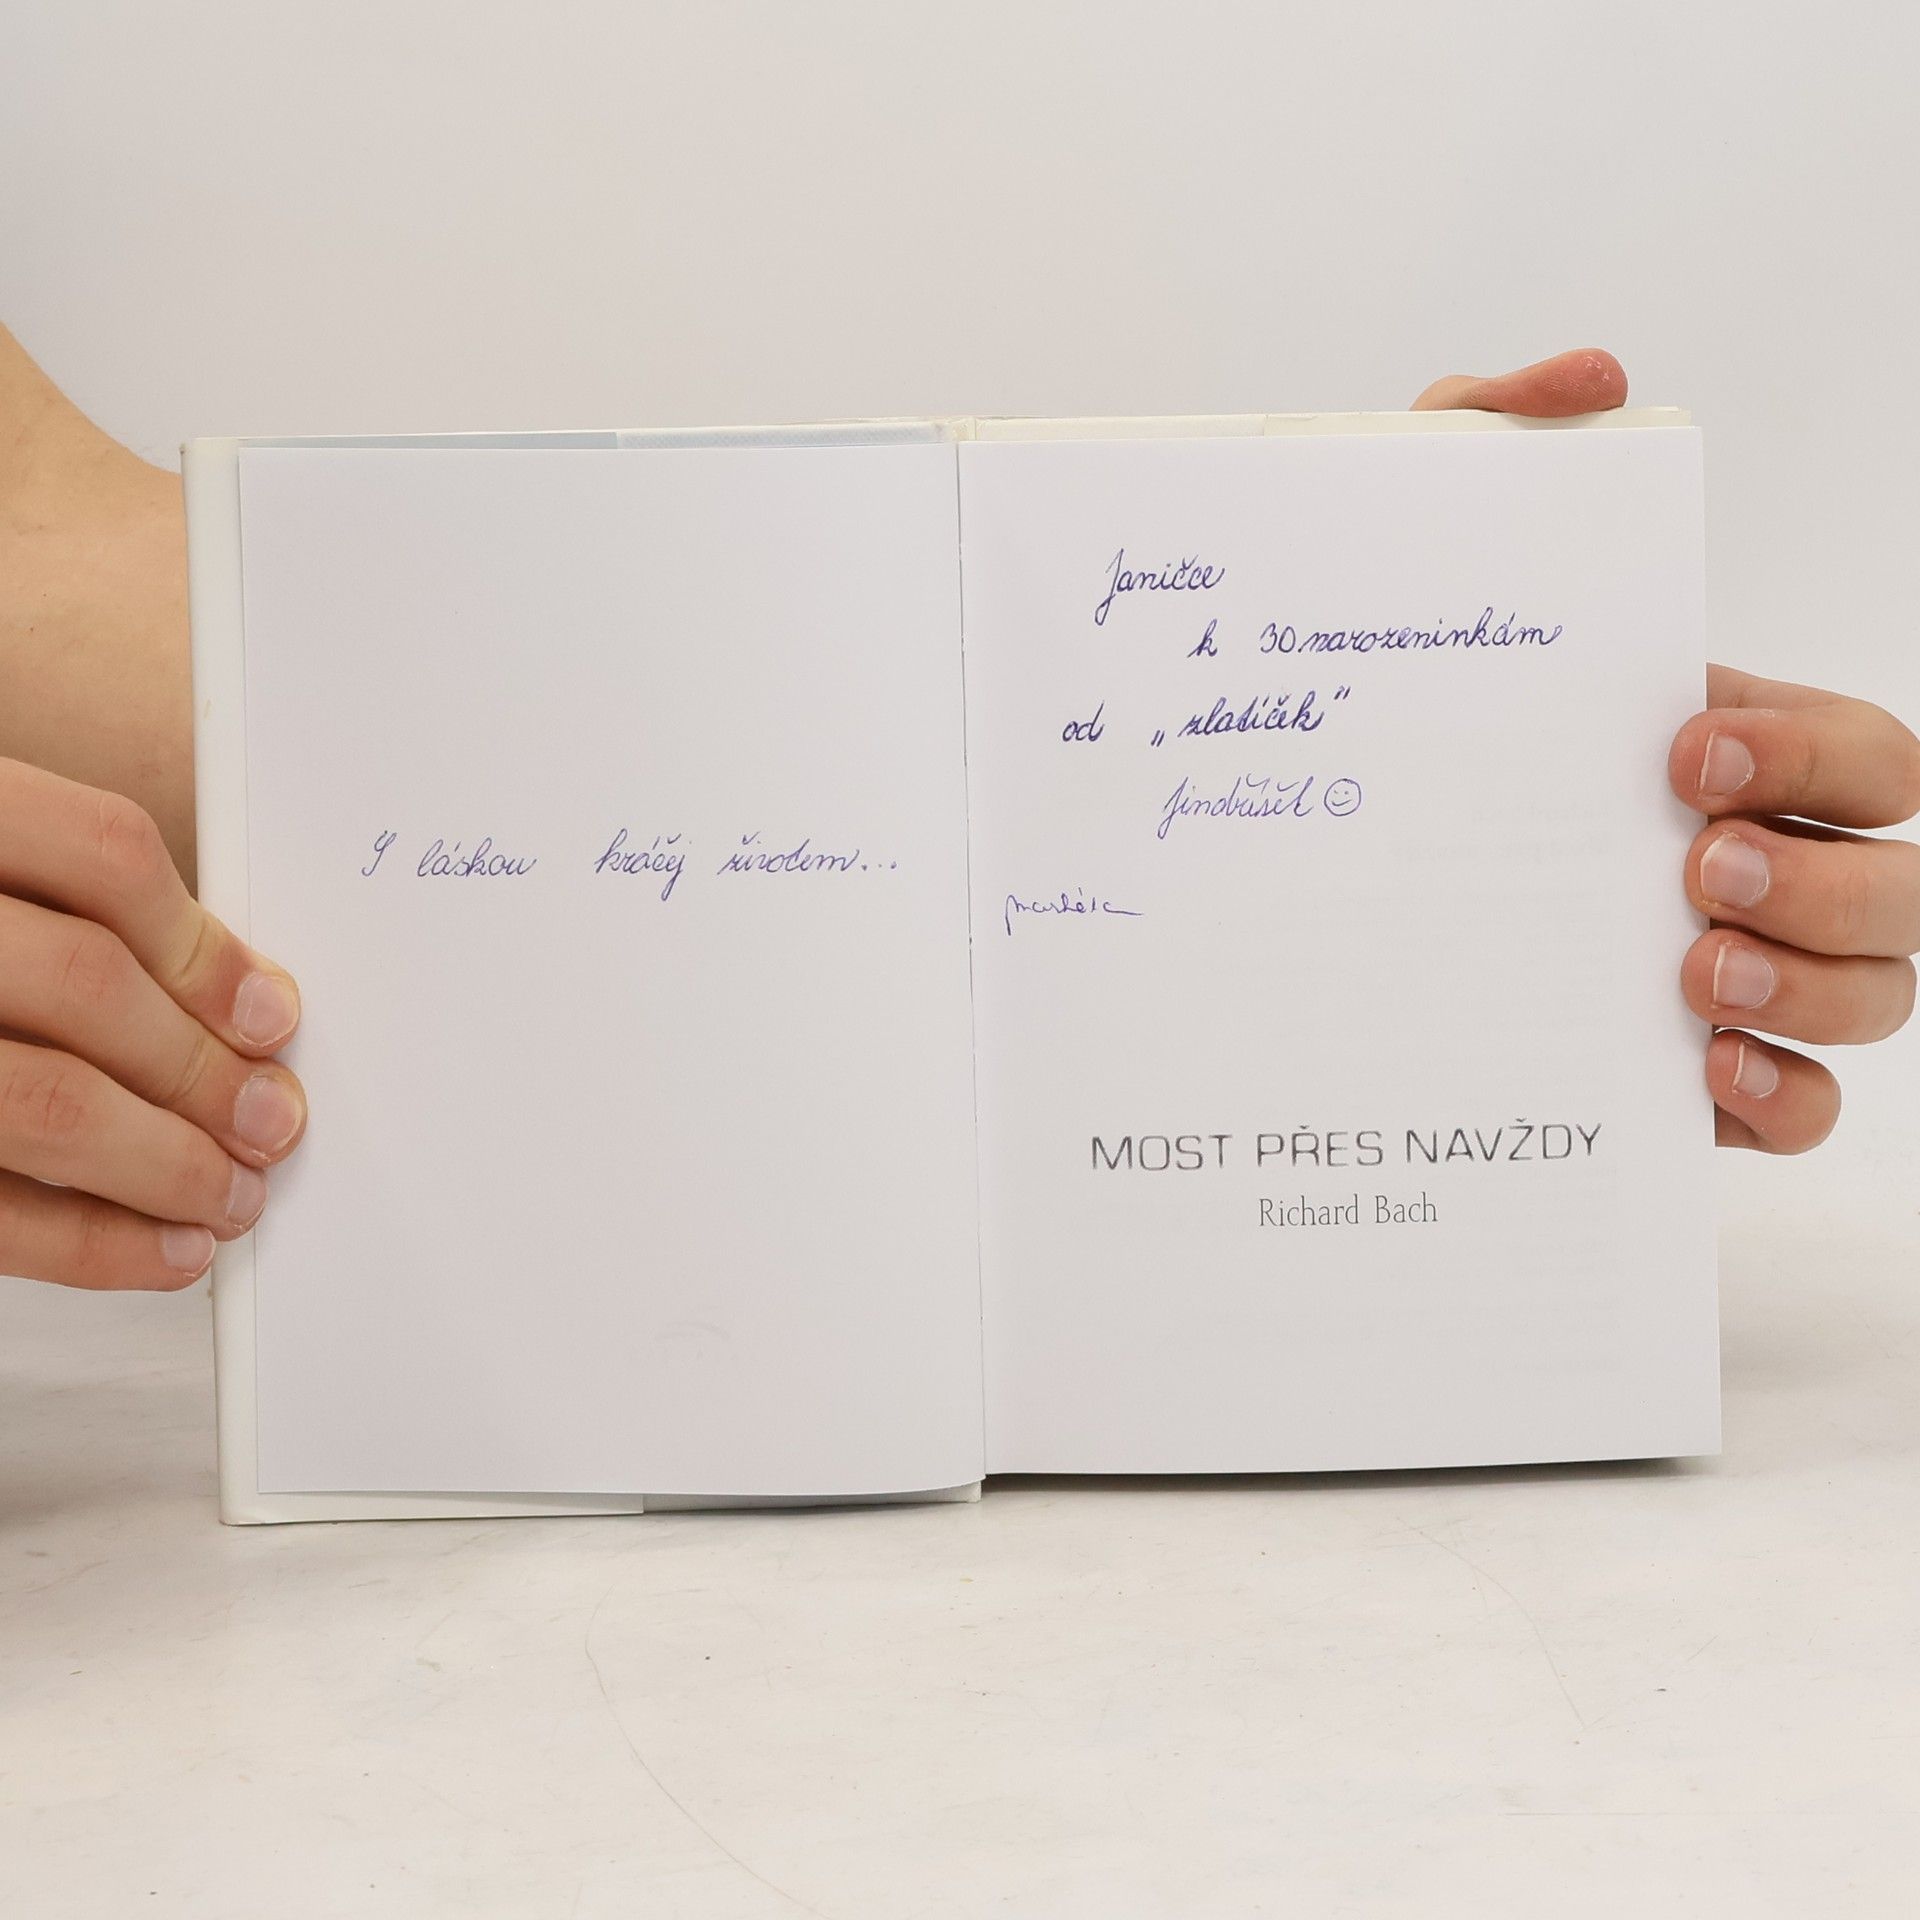 S láskou kráčej životem...
Janičce
k 30 narozeninkám
od „zlatíček"
Jindříšek ☺
Markéta
MOST PŘES NAVŽDY
Richard Bach